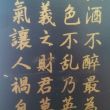 酒不醉最為
色不亂乃英
義之財君莫
氣讓人禍自